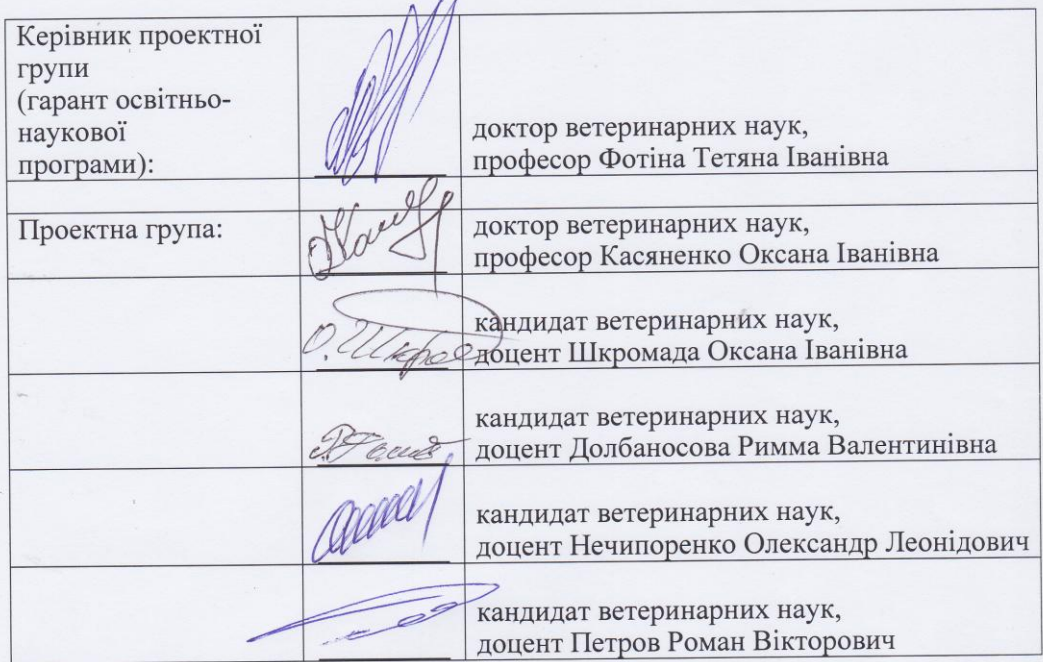 Керівник проектної
групи
(гарант освітньо-
наукової
програми):
доктор ветеринарних наук,
професор Фотіна Тетяна Іванівна
Проектна група:
доктор ветеринарних наук,
професор Касяненко Оксана Іванівна
О. Шкром
кандидат ветеринарних наук,
доцент Шкромада Оксана Іванівна
кандидат ветеринарних наук,
доцент Долбаносова Римма Валентинівна
кандидат ветеринарних наук,
доцент Нечипоренко Олександр Леонідович
кандидат ветеринарних наук,
доцент Петров Роман Вікторович